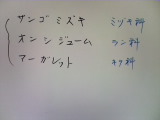 サンゴ ミズキ ミヅキ科
オンシジューム ラン科
アーガレット キク科